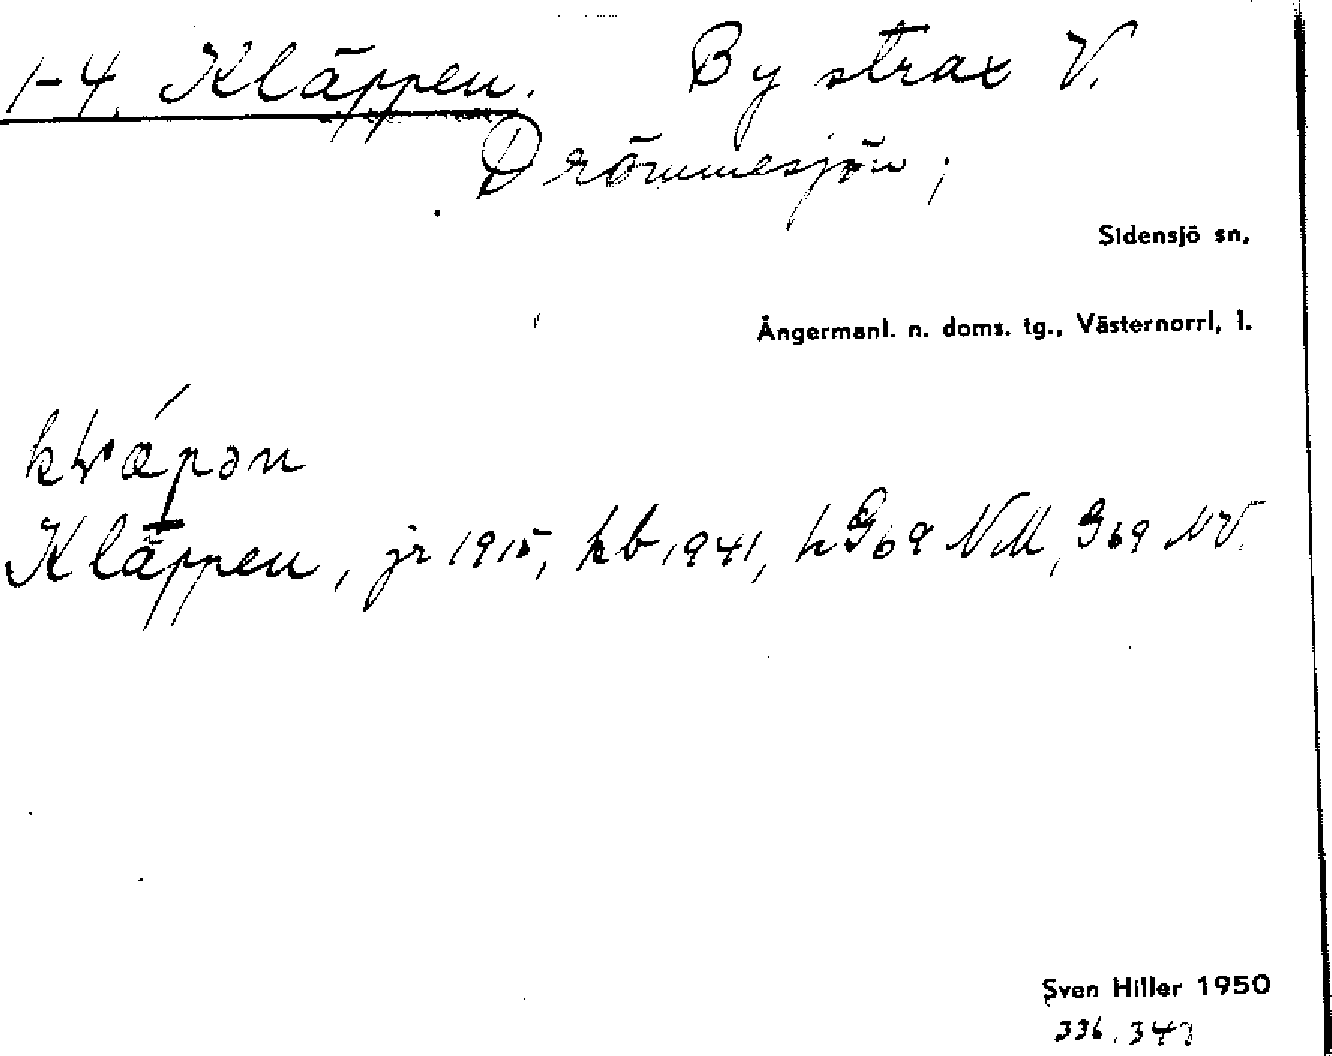 1-4. Kläppen. By strax V.
Drömmesjön;
Sidensjö sn,
Ångermanl. n. doms. tg., Västernorrl, l.
Kläppen, jr 1915, kb 1941, h G 69 NM, G 69 NV.
Sven Hiller 1950